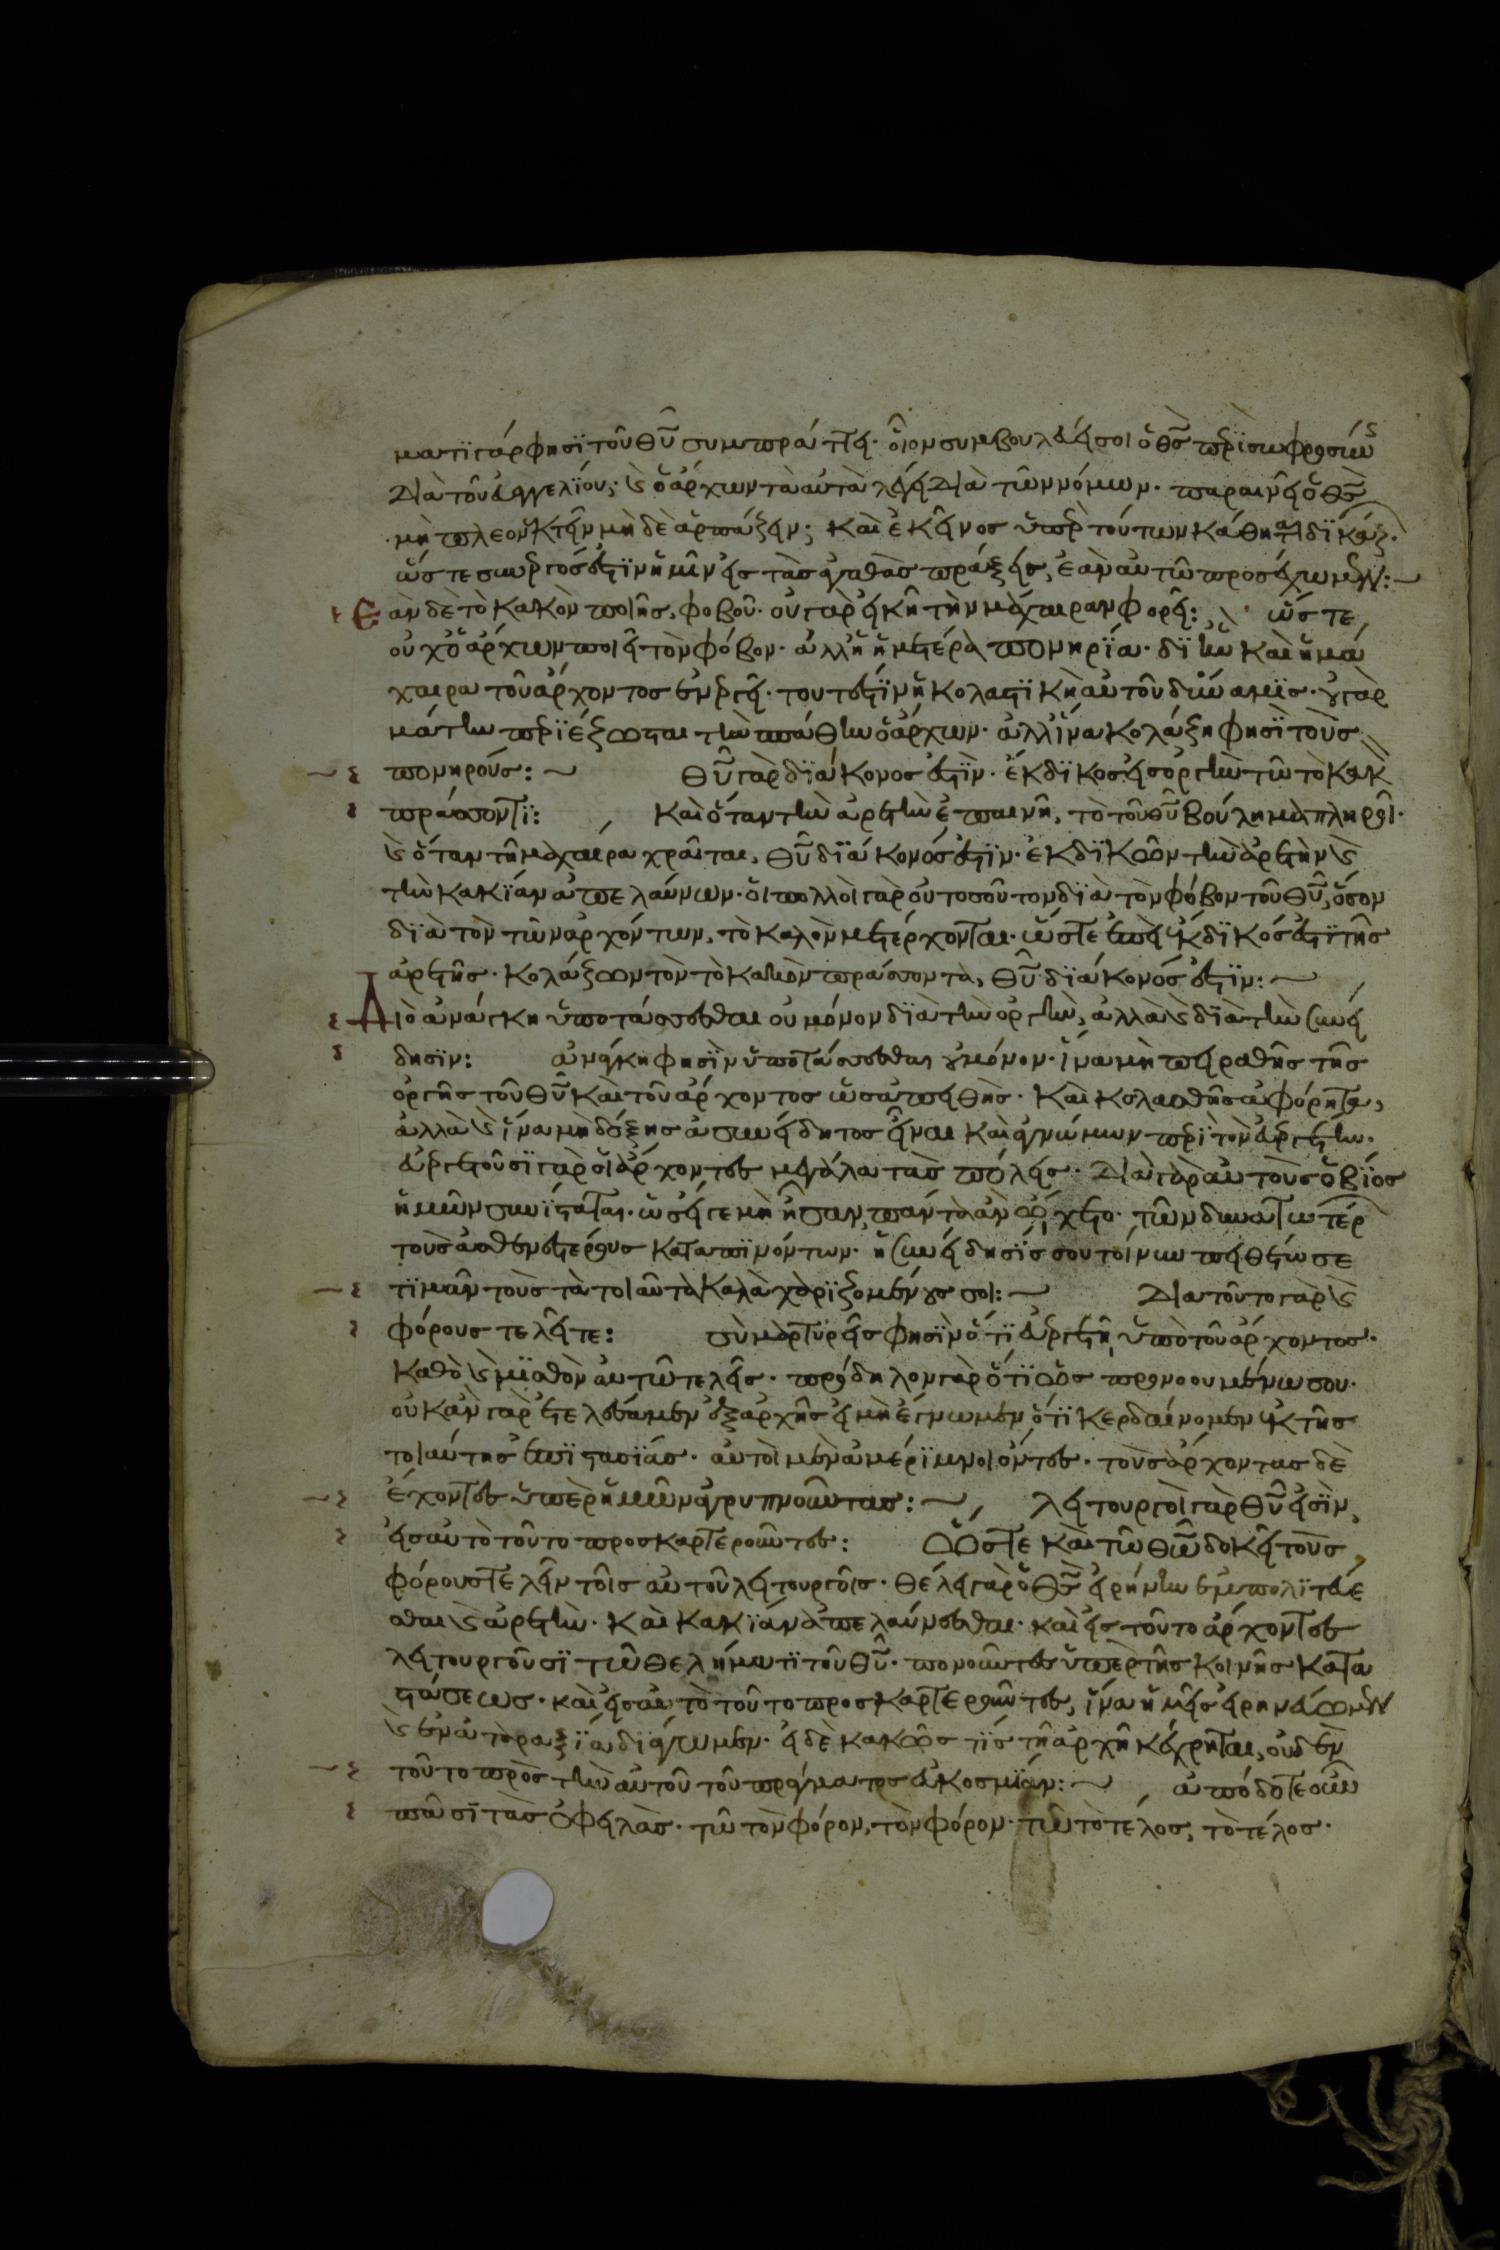 ματι γάρ φησι τοῦ θυ συμπράττει· οἷον συμβουλεύει σοι ὁ θς περὶ σωφροσύνης
διὰ τοῦ εὐαγγελίου· καὶ ὁ ἄρχων τὰ αὐτὰ λέγει διὰ τῶν νόμων· παραινεῖ ὁ θς
μὴ πλεονεκτεῖν μὴ δὲ ἁρπάζειν· καὶ ἐκεῖνος ὑπὲρ τούτων κάθηται δικάζων·
ὥστε συνεργός ἐστιν ἡμῖν εἰς τὰς ἀγαθὰς πράξεις, ἐὰν αὐτῷ προσέχωμεν:~
Ἐὰν δὲ τὸ κακὸν ποιῇς, φοβοῦ· οὐ γὰρ εἰκῆ τὴν μάχαιραν φορεῖ: ὥστε
οὐχ ὁ ἄρχων ποιεῖ τὸν φόβον· ἀλλ' ἡ ἡμετέρα πονηρία· δι' ἣν καὶ ἡ μά
χαιρα τοῦ ἄρχοντος ἐνεργεῖ· τουτέστιν ἡ κολαστικὴ αὐτοῦ δύναμις· οὐ γὰρ
μάτην περιέζωσται τὴν σπάθην ὁ ἄρχων· ἀλλ' ἵνα κολάζη φησὶ τοὺς
πονηρούς:~ θυ γὰρ διάκονος ἐστὶν· ἔκδικος εἰς ὀργὴν τῷ τὸ κακὸν
πράσσοντι: Καὶ ὅταν τὴν ἀρετὴν ἐπαινῇ, τὸ τοῦ θυ βούλημα πληροῖ·
καὶ ὅταν τῇ μαχαίρα χρᾶται, θυ διάκονός ἐστιν· ἐκδικῶν τὴν ἀρετὴν καὶ
τὴν κακίαν ἀπελαύνων· οἱ πολλοὶ γὰρ οὐ τοσοῦτον διὰ τὸν φόβον τοῦ θυ, ὅσον
διὰ τὸν τῶν ἀρχόντων, τὸ καλὸν μετέρχονται· ὥστε ἐπεὶ ἔκδικός ἐστι τῆς
ἀρετῆς· κολάζων τὸν τὸ κακὸν πράσσοντα, θυ διάκονός ἐστιν:~
Διὸ ἀνάγκη ὑποτάσσεσθαι οὐ μόνον διὰ τὴν ὀργὴν, ἀλλὰ καὶ διὰ τὴν συνεί
δησιν: ἀνάγκη φησὶν ὑποτάσσεσθαι οὐ μόνον· ἵνα μὴ πειραθῇς τῆς
ὀργῆς τοῦ θυ καὶ τοῦ ἄρχοντος ὡς ἀπειθὴς· καὶ κολασθῇς ἀφόρητα,
ἀλλὰ καὶ ἵνα μὴ δόξῃς ἀσυνείδητος εἶναι καὶ ἀγνώμων περὶ τὸν εὐεργέτην·
εὐεργετοῦσι γὰρ οἱ ἄρχοντες μεγάλα τὰς πόλεις· διὰ γὰρ αὐτοὺς ὁ βίος
ἡμῶν συνίσταται· ὡς εἴγε μὴ ἦσαν, πάντα ἂν ᾤχετο· τῶν δυνατωτέρων
τοὺς ἀσθενεστέρους καταπινόντων· ἡ συνείδησίς σου τοίνυν πειθέτω σε
τιμᾶν τοὺς τὰ τοιαῦτα καλὰ χαριζομένους σοι:~ Διὰ τοῦτο γὰρ καὶ
φόρους τελεῖτε: σὺ μαρτυρεῖς φησὶν ὅτι εὐεργετῇ ὑπὸ τοῦ ἄρχοντος·
καθὸ καὶ μισθὸν αὐτῷ τελεῖς· πρόδηλον γὰρ ὅτι ὡς προνοουμένω σου·
οὐκ ἂν γὰρ ἐτελέσαμεν ἐξ ἀρχῆς εἰ μὴ ἔγνωμεν ὅτι κερδαίνομεν ἐκ τῆς
τοιαύτης ἐπιστασίας· αὐτοὶ μὲν ἀμέριμνοι ὄντες· τοὺς ἄρχοντας δὲ
ἔχοντες ὑπὲρ ἡμῶν ἀγρυπνοῦντας:~ λειτουργοὶ γὰρ θυ εἰσὶν,
εἰς αὐτὸ τοῦτο προσκαρτεροῦντες: Ὥστε καὶ τῷ θῶ δοκεῖ τοὺς
φόρους τελεῖν τοῖς αὐτοῦ λειτουργοῖς· θέλει γὰρ ὁ θς εἰρήνην ἐμπολιτεύε
σθαι καὶ ἀρετὴν· καὶ κακίαν ἀπελαύνεσθαι· καὶ εἰς τοῦτο ἄρχοντες
λειτουργοῦσι τῷ θελήματι τοῦ θυ· πονοῦντες ὑπὲρ τῆς κοινῆς κατα
στάσεως· καὶ εἰς αὐτὸ τοῦτο προσκαρτεροῦντες, ἵνα ἡμεῖς εἰρηνεύωμεν
καὶ ἐν ἀταραξία διάγωμεν· εἰ δὲ κακῶς τίς τῇ ἀρχῇ κέχρηται, οὐδὲν
τοῦτο πρὸς τὴν αὐτοῦ τοῦ πράγματος εὐκοσμίαν:~ ἀπόδοτε οὖν
πᾶσι τὰς ὀφειλὰς· τῷ τὸν φόρον, τὸν φόρον· τῷ τὸ τέλος, τὸ τέλος·